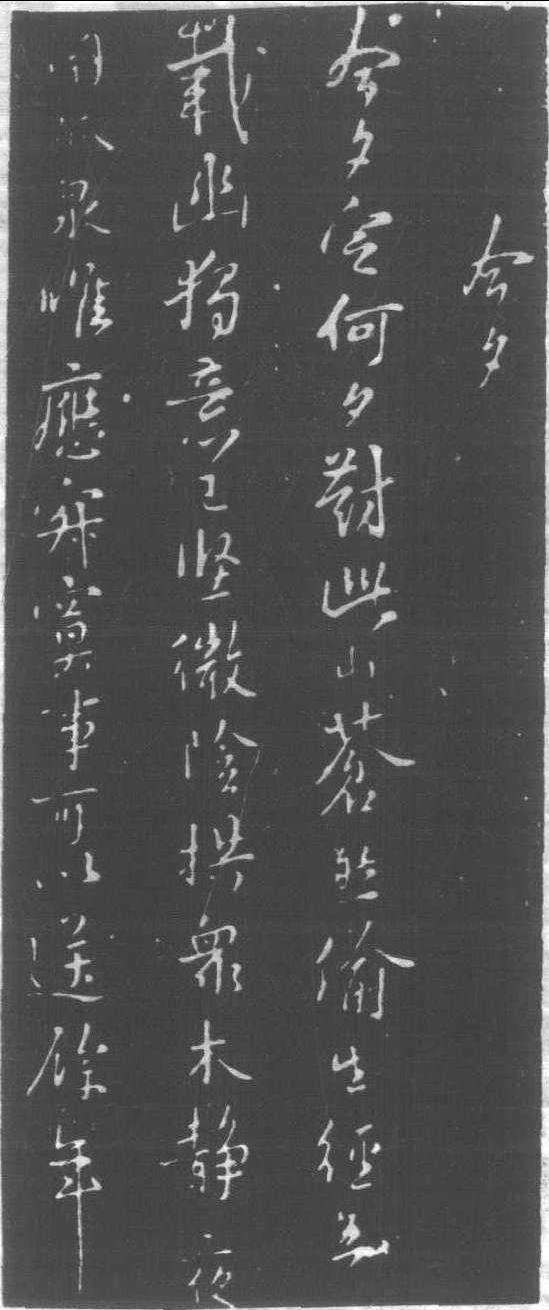 今夕
今夕定何夕對此山蒼然偷生經五
載幽獨意已堅微陰拱眾木靜夜
聞孤泉唯應寂寞事可以送餘年